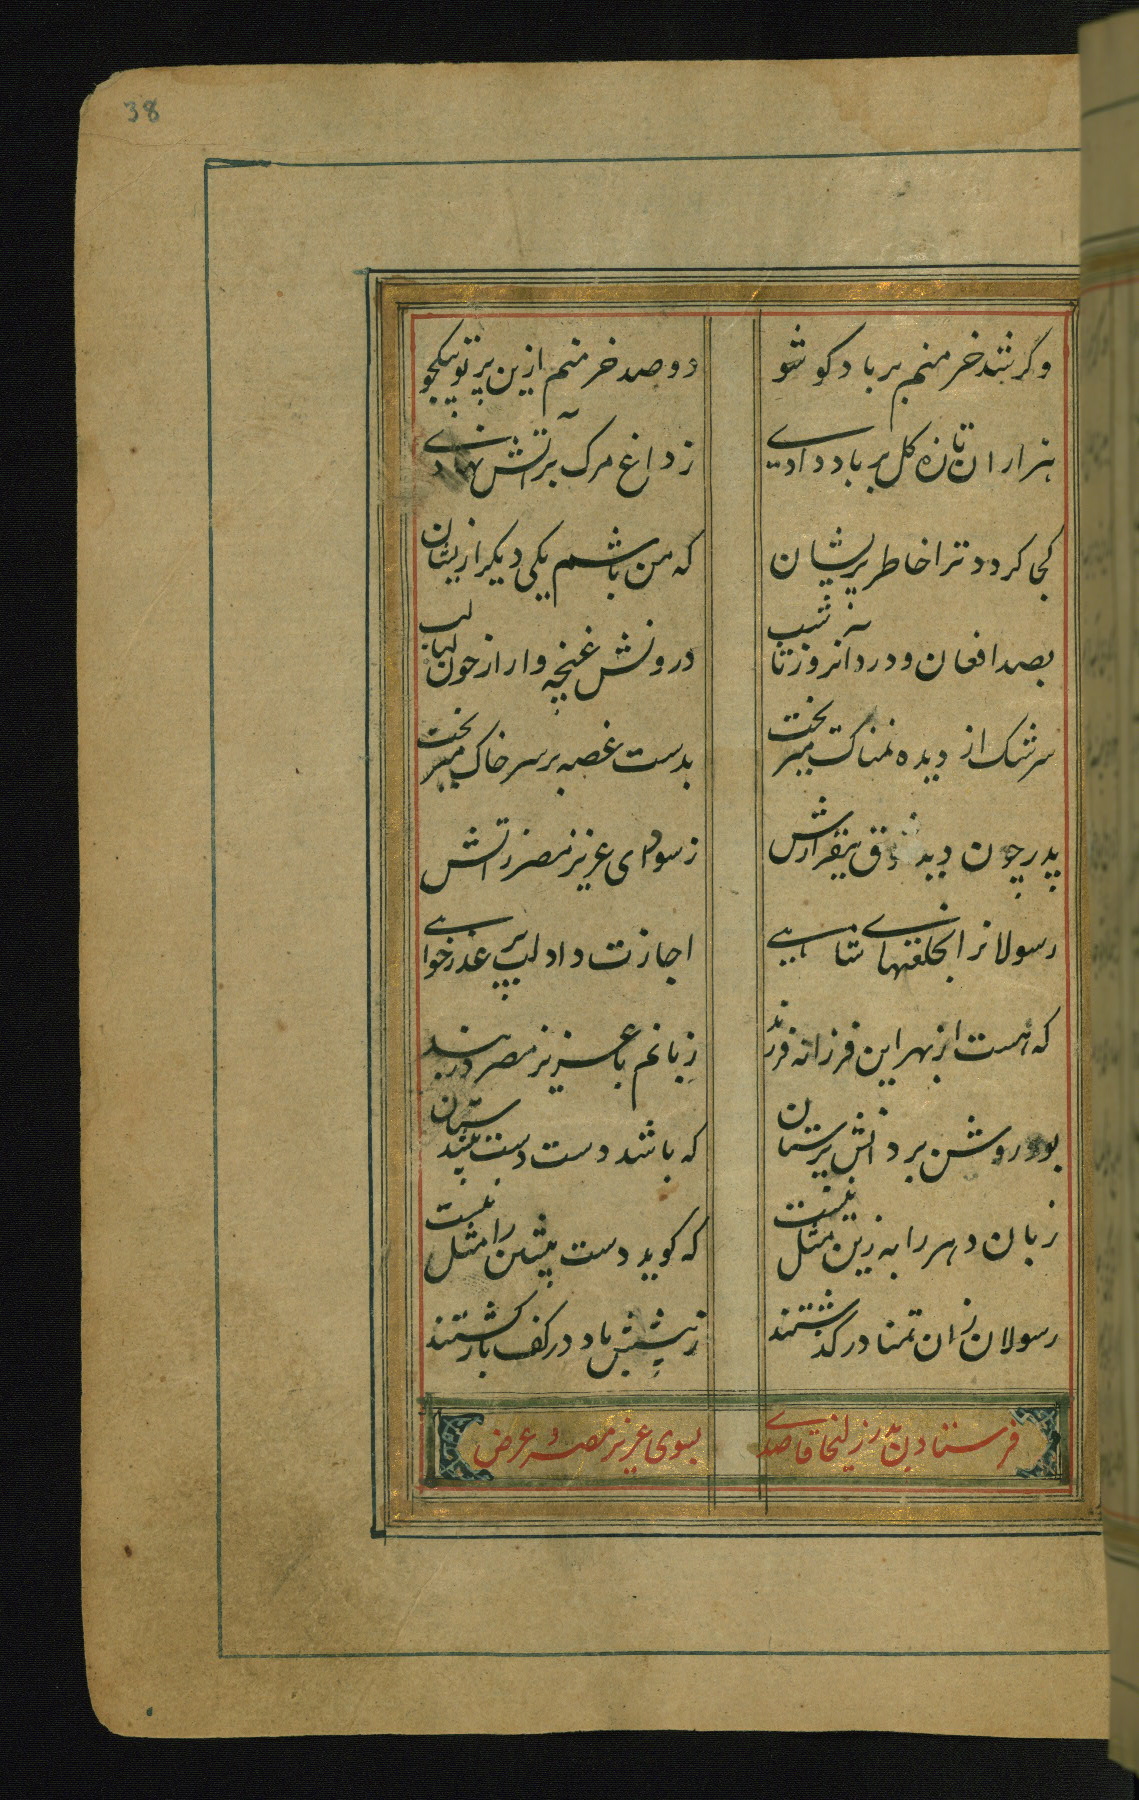 38
وگر شد خرمنم بر باد کو شو
دو صد خرمنم ازین پر تو بیکجو
هزاران تازه کل بر باد دادی
ز داغ مرک بر آتش نهادی
کجا کردد ترا خاطر پریشان
که من باشم یکی دیکر ازیشان
بصد افغان و درد آنروز تا شب
درونش غنچه وار از خون لبالب
سرشک از دیده نمناک میریخت
بدست غصه بر سر خاک میریخت
پدر چون دید ذوق بیقرارش
ز سودای عزیز مصر
رسولانرا بخلعتهای شاهی
اجازت داد لب پر عذرخواهی
که هست از بهر این فرزانه فرزند
زبانم با عزیز مصر در بند
بود روشن بر دانش پرستان
که باشد دست دست
زبان دهر را به زین مثل نیست
که کوید دست پیشین را مثل نیست
رسولان زان تمنا در کذشتند
ز پیشش باد در کف باز کشتند
فرستادن پدر زلیخا قاصدی
بسوی عزیز مصر و عرض